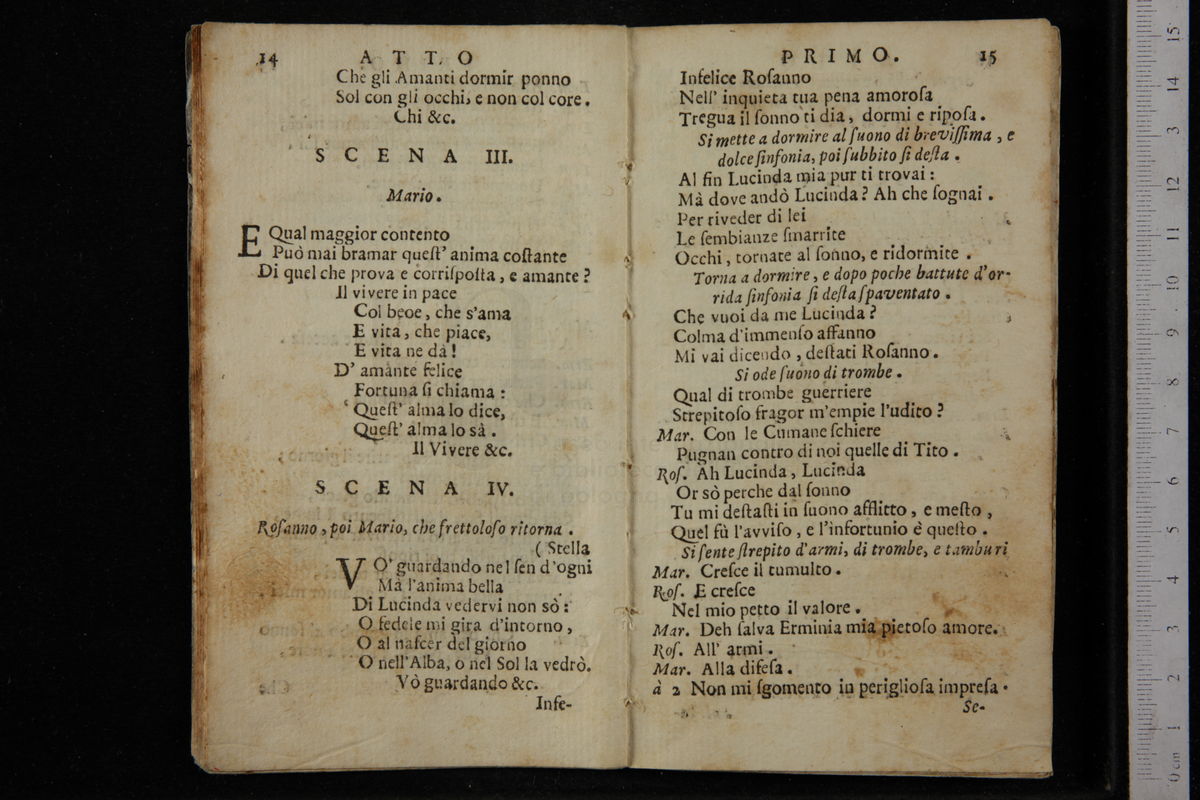 14 ATTO
Che gli Amanti dormir ponno
Sol con gli occhi, e non col core.
Chi &c.
SCENA III.
Mario.
E Qual maggior contento
Può mai bramar queſt' anima coſtante
Di quel che prova e corriſpoſta, e amante?
Il vivere in pace
Col beoe, che s'ama
E vita, che piace,
E vita ne dà!
D' amante felice
Fortuna ſi chiama:
Queſt' alma lo dice,
Queſt' alma lo sà.
Il Vivere &c.
SCENA IV.
Roſanno, poi Mario, che frettoloſo ritorna.
(Stella
VO' guardando nel ſen d'ogni
Mà l'anima bella
Di Lucinda vedervi non sò:
O fedele mi gira d'intorno,
O al naſcer del giorno
O nell'Alba, o nel Sol la vedrò.
Vò guardando &c.
Infe-
PRIMO. 15
Infelice Roſanno
Nell' inquieta tua pena amoroſa
Tregua il ſonno ti dia, dormi e ripoſa.
Si mette a dormire al ſuono di breviſſima, e
dolce ſinfonia, poi ſubbito ſi deſta.
Al fin Lucinda mia pur ti trovai:
Mà dove andò Lucinda? Ah che ſognai.
Per riveder di lei
Le ſembianze ſmarrite
Occhi, tornate al ſonno, e ridormite.
Torna a dormire, e dopo poche battute d'or-
rida ſinfonia ſi deſta ſpaventato.
Che vuoi da me Lucinda?
Colma d'immenſo affanno
Mi vai dicendo, deſtati Roſanno.
Si ode ſuono di trombe.
Qual di trombe guerriere
Strepitoſo fragor m'empie l'udito?
Mar. Con le Cumane ſchiere
Pugnan contro di noi quelle di Tito.
Roſ. Ah Lucinda, Lucinda
Or sò perche dal ſonno
Tu mi deſtaſti in ſuono afflitto, e meſto,
Quel fù l'avviſo, e l'infortunio è queſto.
Si ſente ſtrepito d'armi, di trombe, e tamburi
Mar. Creſce il tumulto.
Roſ. E creſce
Nel mio petto il valore.
Mar. Deh ſalva Erminia mia pietoſo amore.
Roſ. All' armi.
Mar. Alla difeſa.
à 2 Non mi ſgomento in periglioſa impreſa.
Se-
0 cm 1 2 3 4 5 6 7 8 9 10 11 12 13 14 15